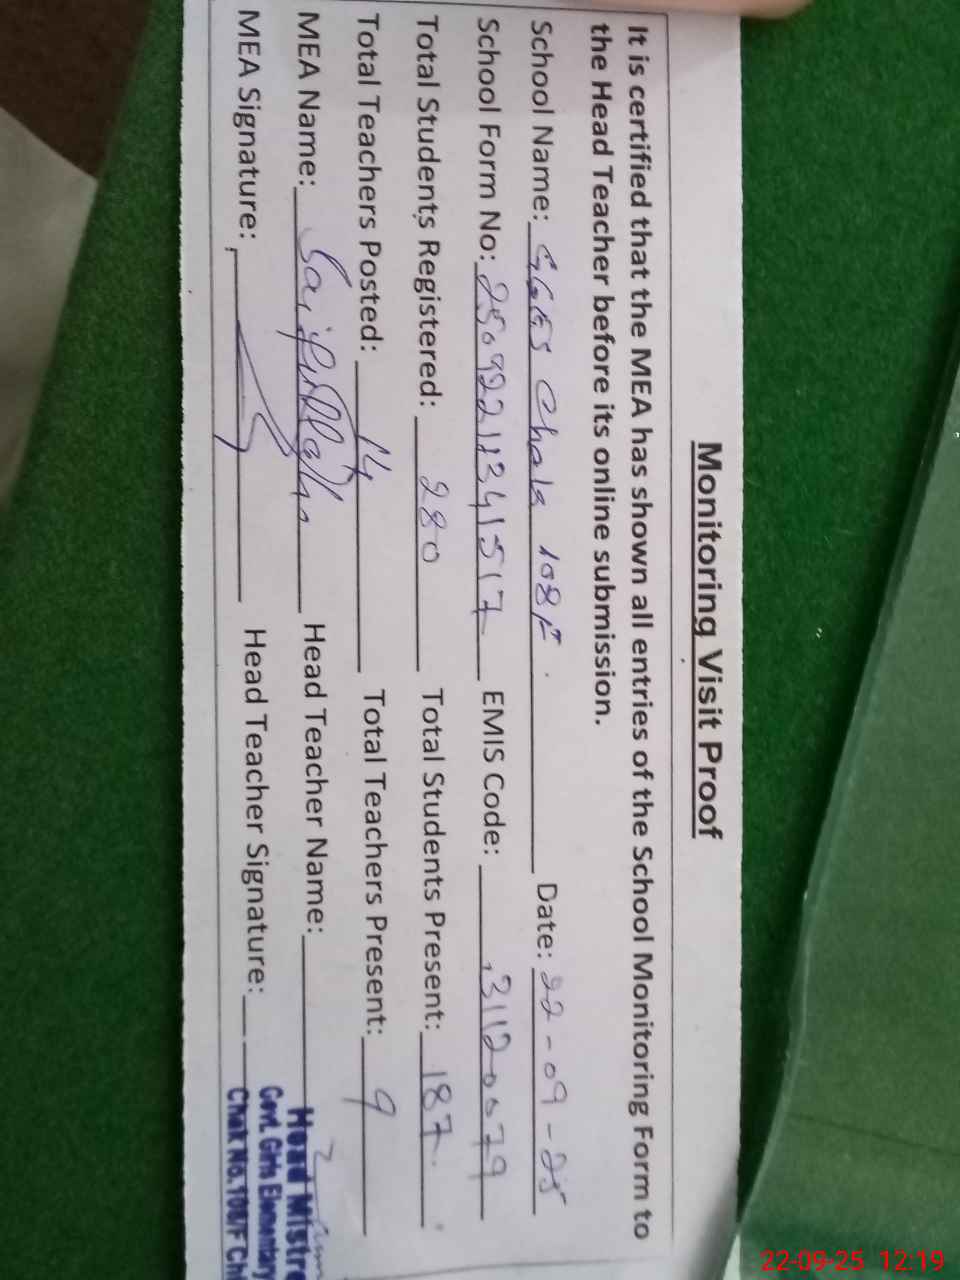 Monitoring Visit Proof
It is certified that the MEA has shown all entries of the School Monitoring Form to
the Head Teacher before its online submission.
School Name: GGES Chak 108F Date: 22-09-25
School Form No: 25092211341517 EMIS Code: 31120079
Total Students Registered: 280 Total Students Present: 187
Total Teachers Posted: 14 Total Teachers Present: 9
MEA Name: Saifullah Head Teacher Name:
MEA Signature: Head Teacher Signature:
Head Mistre
Govt. Girls Elementary
Chak No. 108/F Ch
22-09-25 12:19